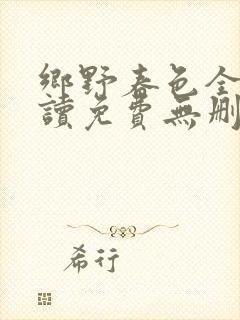 鄉野春色全
讀免費無刪
希行